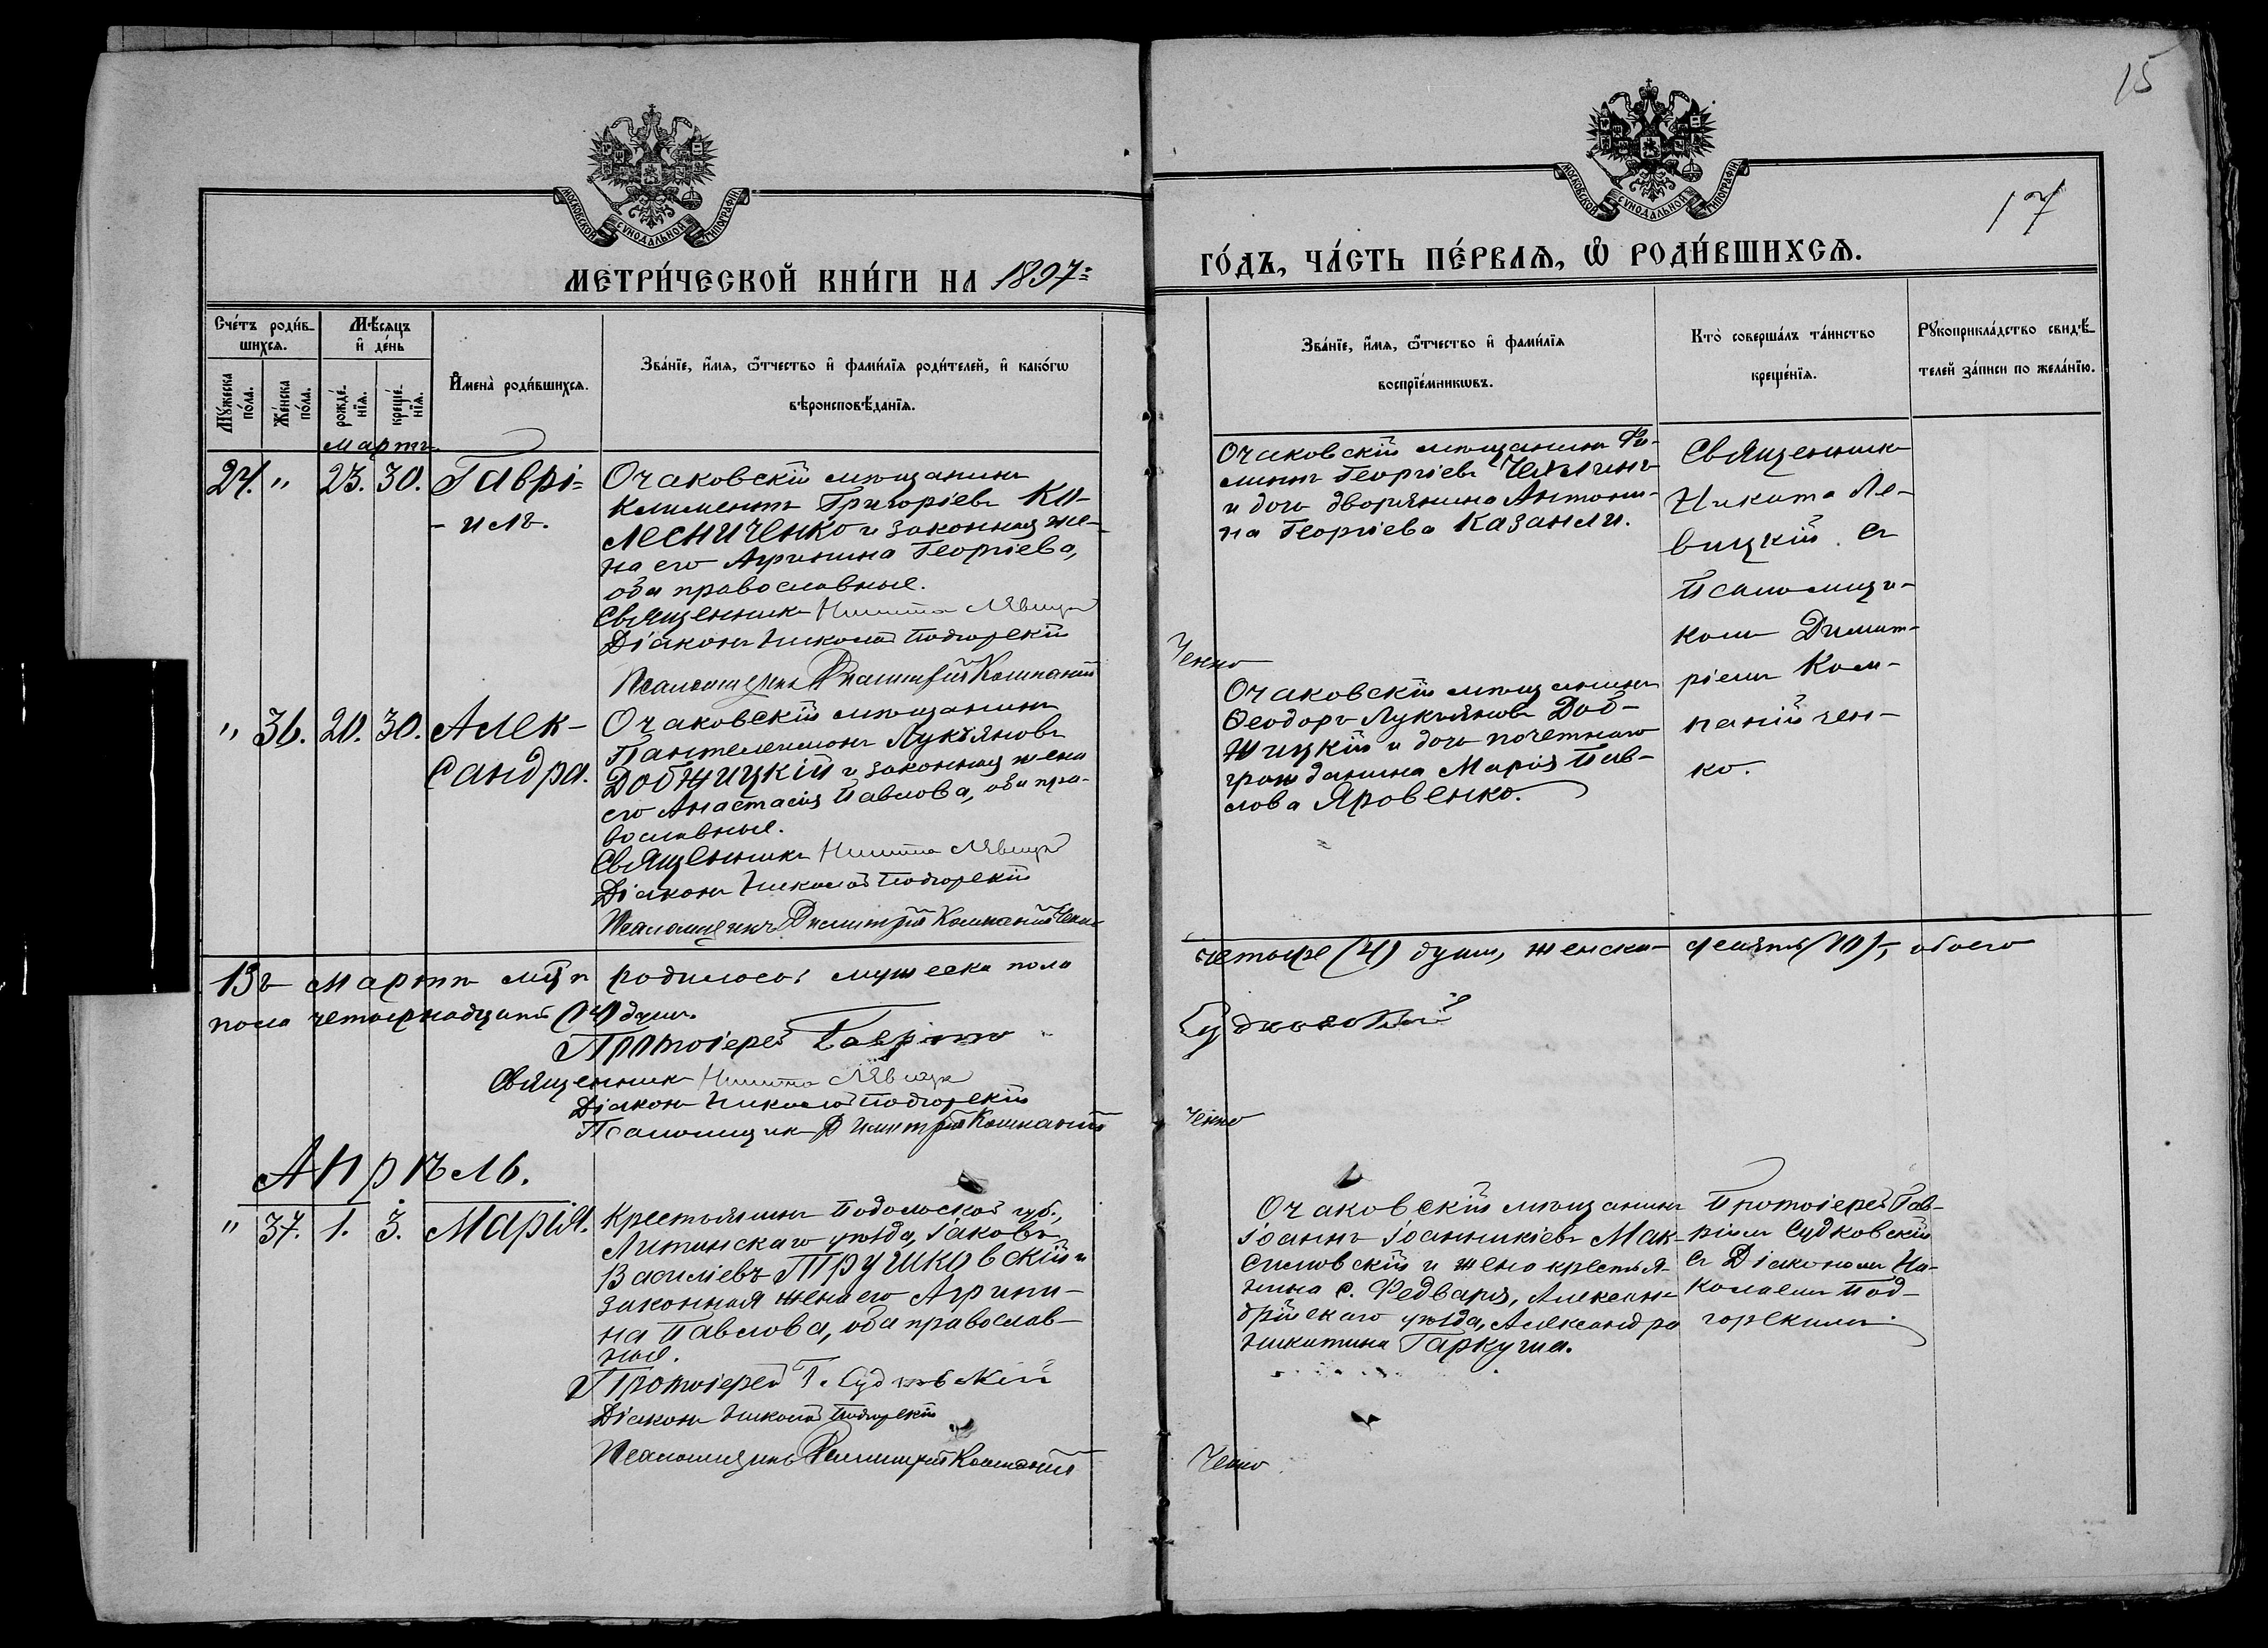 15
17
МОСКОВСКОЙ СѴНОДАЛЬНОЙ ТИПОГРАФІИ
МОСКОВСКОЙ СѴНОДАЛЬНОЙ ТИПОГРАФІИ
МЕТРИ́ЧЕСКОЙ КНИ́ГИ НА 1897
ГО́ДЪ, ЧА́СТЬ ПЕ́РВАѦ, Ѡ РОДИ́ВШИХСѦ.
Сче́тъ роди́в-
шихсѧ.
Мꙋ́жеска по́ла.
Же́нска по́ла.
Мѣ́сѧцъ
и҆ де́нь
рожде́-
нїѧ.
креще́-
нїѧ.
И҆мена̀ роди́вшихсѧ.
Зва́нїе, и҆́мѧ, ѻ҆́тчество и҆ фами́лїѧ роди́телей, и҆ како́гѡ
вѣроисповѣ́данїѧ.
Зва́нїе, и҆́мѧ, ѻ҆́тчество и҆ фами́лїѧ
воспрїе́мникѡвъ.
Кто̀ соверша́лъ та́инство
креще́нїѧ.
Рꙋкоприкла́дство свидѣ́-
телей за́писи по жела́нїю.
Мартъ
24. " 23. 30. Гаврі-
илъ.
Очаковскій мѣщанинъ
Климентъ Григоріевъ Ко-
лесниченко и законная же-
на его Агрипина Георгіева,
оба православные.
Священникъ Никита Левицкій
Діаконъ Николай Подгорскій
Псаломщикъ Димитрій Компаній
ченко
Очаковскій мѣщанинъ Фи-
липпъ Георгіевъ
и дочь дворянина Антони-
на Георгіева Казанли.
Священникъ
Никита Ле-
вицкій съ
Псаломщи-
комъ Димит-
ріемъ Ком-
панійчен-
ко.
" 36. 20. 30. Алек-
сандра.
Очаковскій мѣщанинъ
Пантелеимонъ Лукьяновъ
Добжицкій и законная жена
его Анастасія Павлова, оба пра-
вославные.
Священникъ Никита Левицкій
Діаконъ Николай Подгорскій
Псаломщикъ Димитрій Компанійченко
Очаковскій мѣщанинъ
Ѳеодоръ Лукьяновъ Доб-
жицкій и дочь почетнаго
гражданина Марія Пав-
лова Яровенко.
Въ Мартѣ мцѣ родилось: мужеска пола четыре (4) души, женска десять (10), обоего
пола четырнадцать (14) душъ.
Протоіерей Гавріилъ Судковскій
Священникъ Никита Левицкій
Діаконъ Николай Подгорскій
Псаломщикъ Димитрій Компаній
ченко
Апрѣль.
" 37. 1. 3. Марія.
Крестьянинъ Подольской губ.,
Литинскаго уѣзда, Іаковъ
Василіевъ Трушковскій и
законная жена его Агрипи-
на Павлова, оба православ-
ные.
Протоіерей Г. Судковскій
Діаконъ Николай Подгорскій
Псаломщикъ Димитрій Компаній
ченко
Очаковскій мѣщанинъ
Іоаннъ Іоанникіевъ Мак-
симовскій и жена крестья-
нина с. Федваря, Алексан-
дрійскаго уѣзда, Александра
Никитина Гаркуша.
Протоіерей Гав-
ріилъ Судковскій
съ Діакономъ Ни-
колаемъ Под-
горскимъ.